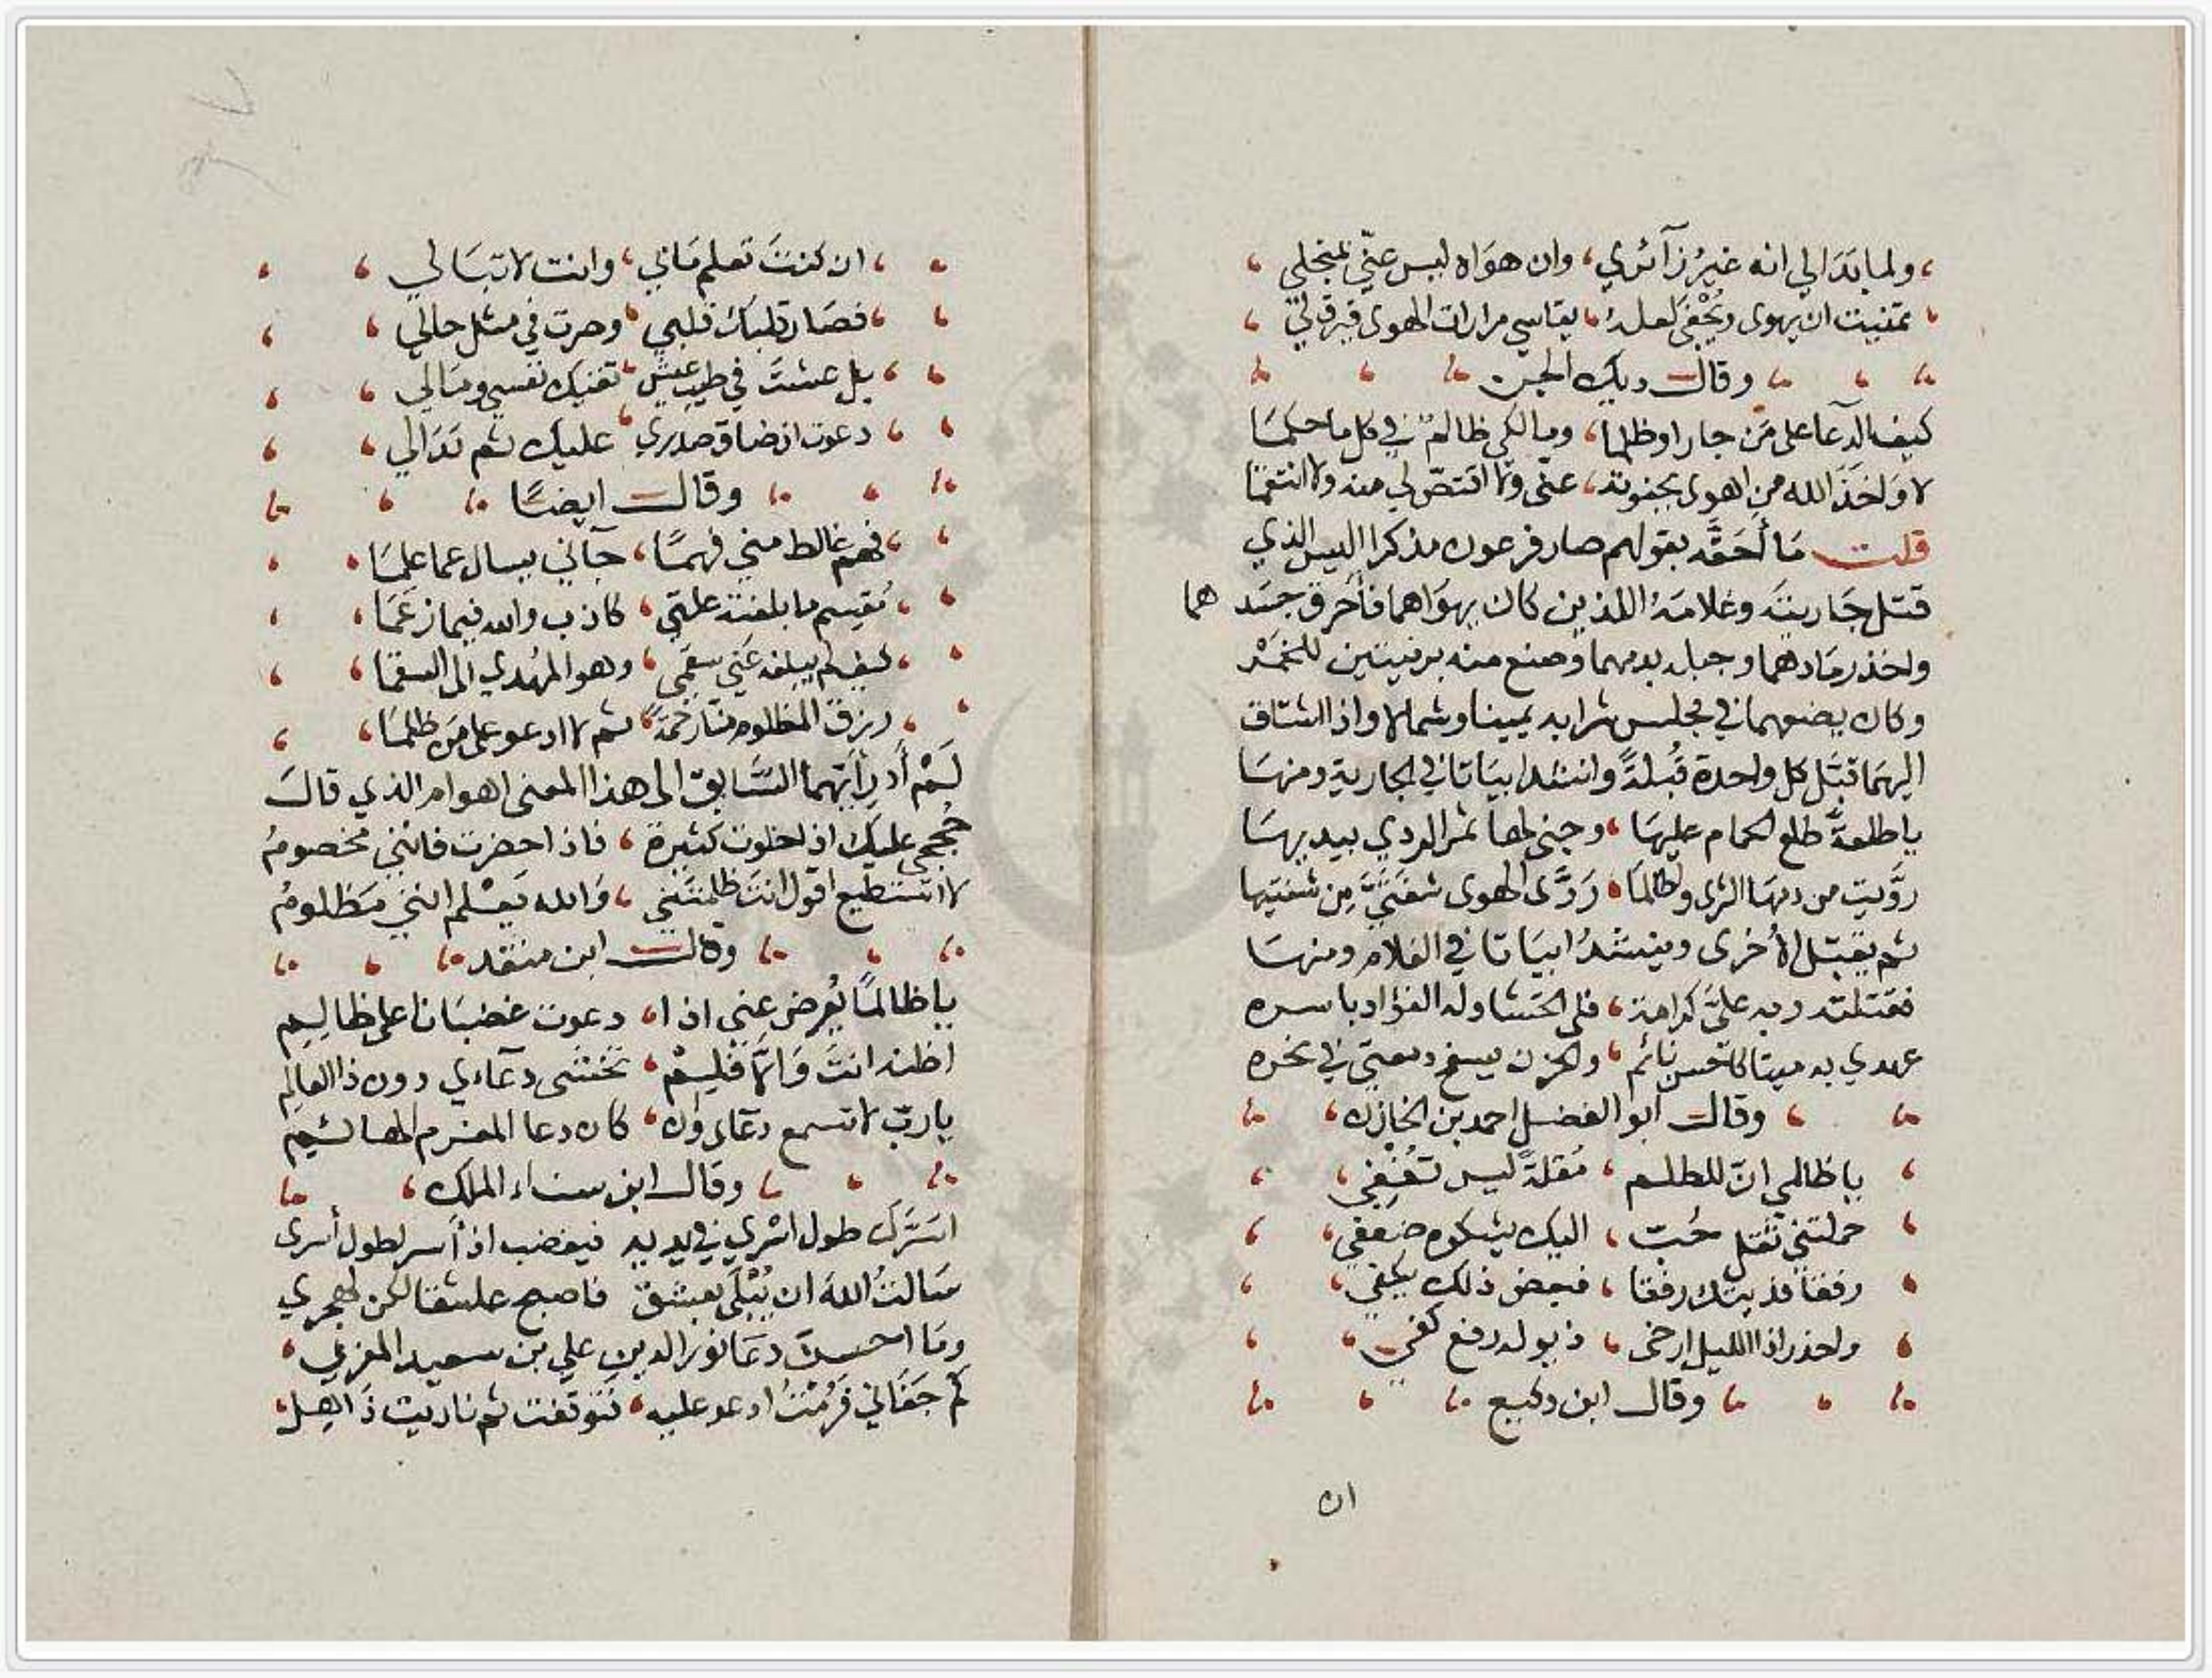 ولما بدا لي انه غير زآئري، وان هواه ليس عنّي بمنجلي
تمنيت ان يهوى ويُجْفَى لعله، يقاسي مرارات الهوى فيرق لي
وقال ديك الجن
كيف الدعآ على مَن جار او ظلما، ومالكي ظالمٌ في كل ما حكمَا
لا وَاخذ الله من اهوى بجفوته، عنّي ولا اقتصّ لي منه ولا انتقما
قلت مَا أحَقّه بقولهم صار فرعون مذكرا ابليس الذي
قتل جَاريتَه وغلامَهُ اللذين كان يهوَاهما فأحرق جسد هما
واخذ رمَادهما وجبله بدمهما وصنع منه برنيتين للخمْر
وكان يضعهما في مجلس شرابه يمينا وشمالا واذا اشتاق
اليهمَا قبّل كل واحدة قُبلةً وانشد ابيَاتا في الجارية ومنهَا
يا طلعةً طلع الحمام عليهَا، وجنى لها ثمر الردي بيديهَا
روَّيت من دمهَا الثرى ولطالمَا، رَوَّى الهوى شفتَيَّ مِن شفتيها
ثم يقبّل الأخرى وينشدُ ابيَاتا في الغلام ومنهَا
فقتلته وبه عليَّ كرامة، فلي الحَشا وله الفؤاد باسره
عهدي به ميتا كاحسن نائم، والحزن يسفح دمعتي في نحره
وقال ابو الفضل احمد بن الخازن،
يا ظالمي انّ للظلم، مُقلةً ليس تُغْفِي،
حملتني ثقل حُبّ، اليك يشكوه ضعفي،
رفقا فديتك رفقا، فبعض ذلك يكفي،
واحذر اذا الليل ارخى، ذيوله رفع كفي،
وقال ابن وكيع
ان
ان كنتَ تعلم مَا بي، وانت لا تبَالي
فصَار قلبك قلبي، وصرت في مثل حالي
بل عشتَ في طيب عيش، تفديك نفسي ومَالي
دعوت اذ ضاق صدري، عليك ثم بَدَا لي
وقال ايضًا
فهمٌ غالط مني فهمًا، جآني يسال عما علمَا
مُقسم ما بلغته علتي، كاذب والله فيما زعَمَا
كيف لم يبلغه عَني سقَمي، وهو المهُدي الى السقما
رزق المظلوم منّا رَحمَةً، ثم لا ادعو على مَن ظلمَا
لَمْ أدرِ أيّهما السَّابق الى هذا المعنى اهو ام الذي قالَ
حُججي عليك اذا خلوت كثيرة، فاذا حضرت فانني مخصومُ
لا استطيع اقول انت ظلمتَني، وَالله يَعْلم انني مَظلومُ
وقال ابن منقذ
يا ظالمًا يُعرض عني اذا، دعوت غضبَانا على ظالِمِ
اظنه انتَ وَالا فلِمْ، تخشى دعآءي دون ذا العالم
يا ربّ لا تسمع دعآى وان، كان دعا المغرم الهائم
وقال ابن سناء الملك،
اسَرَّكَ طول اسْري في يديه فيغضب اذ أسر لطول أسرى
سَالتُ اللهَ ان يُبْلَى بعشق فاصبح عاشقا لكن لهجري
ومَا احسن دعَا نور الدين علي بن سعيد المغربي،
كم جفَاني فَرُمْتُ ادعو عليه، فتوقفت ثم ناديت ذَاهِلْ